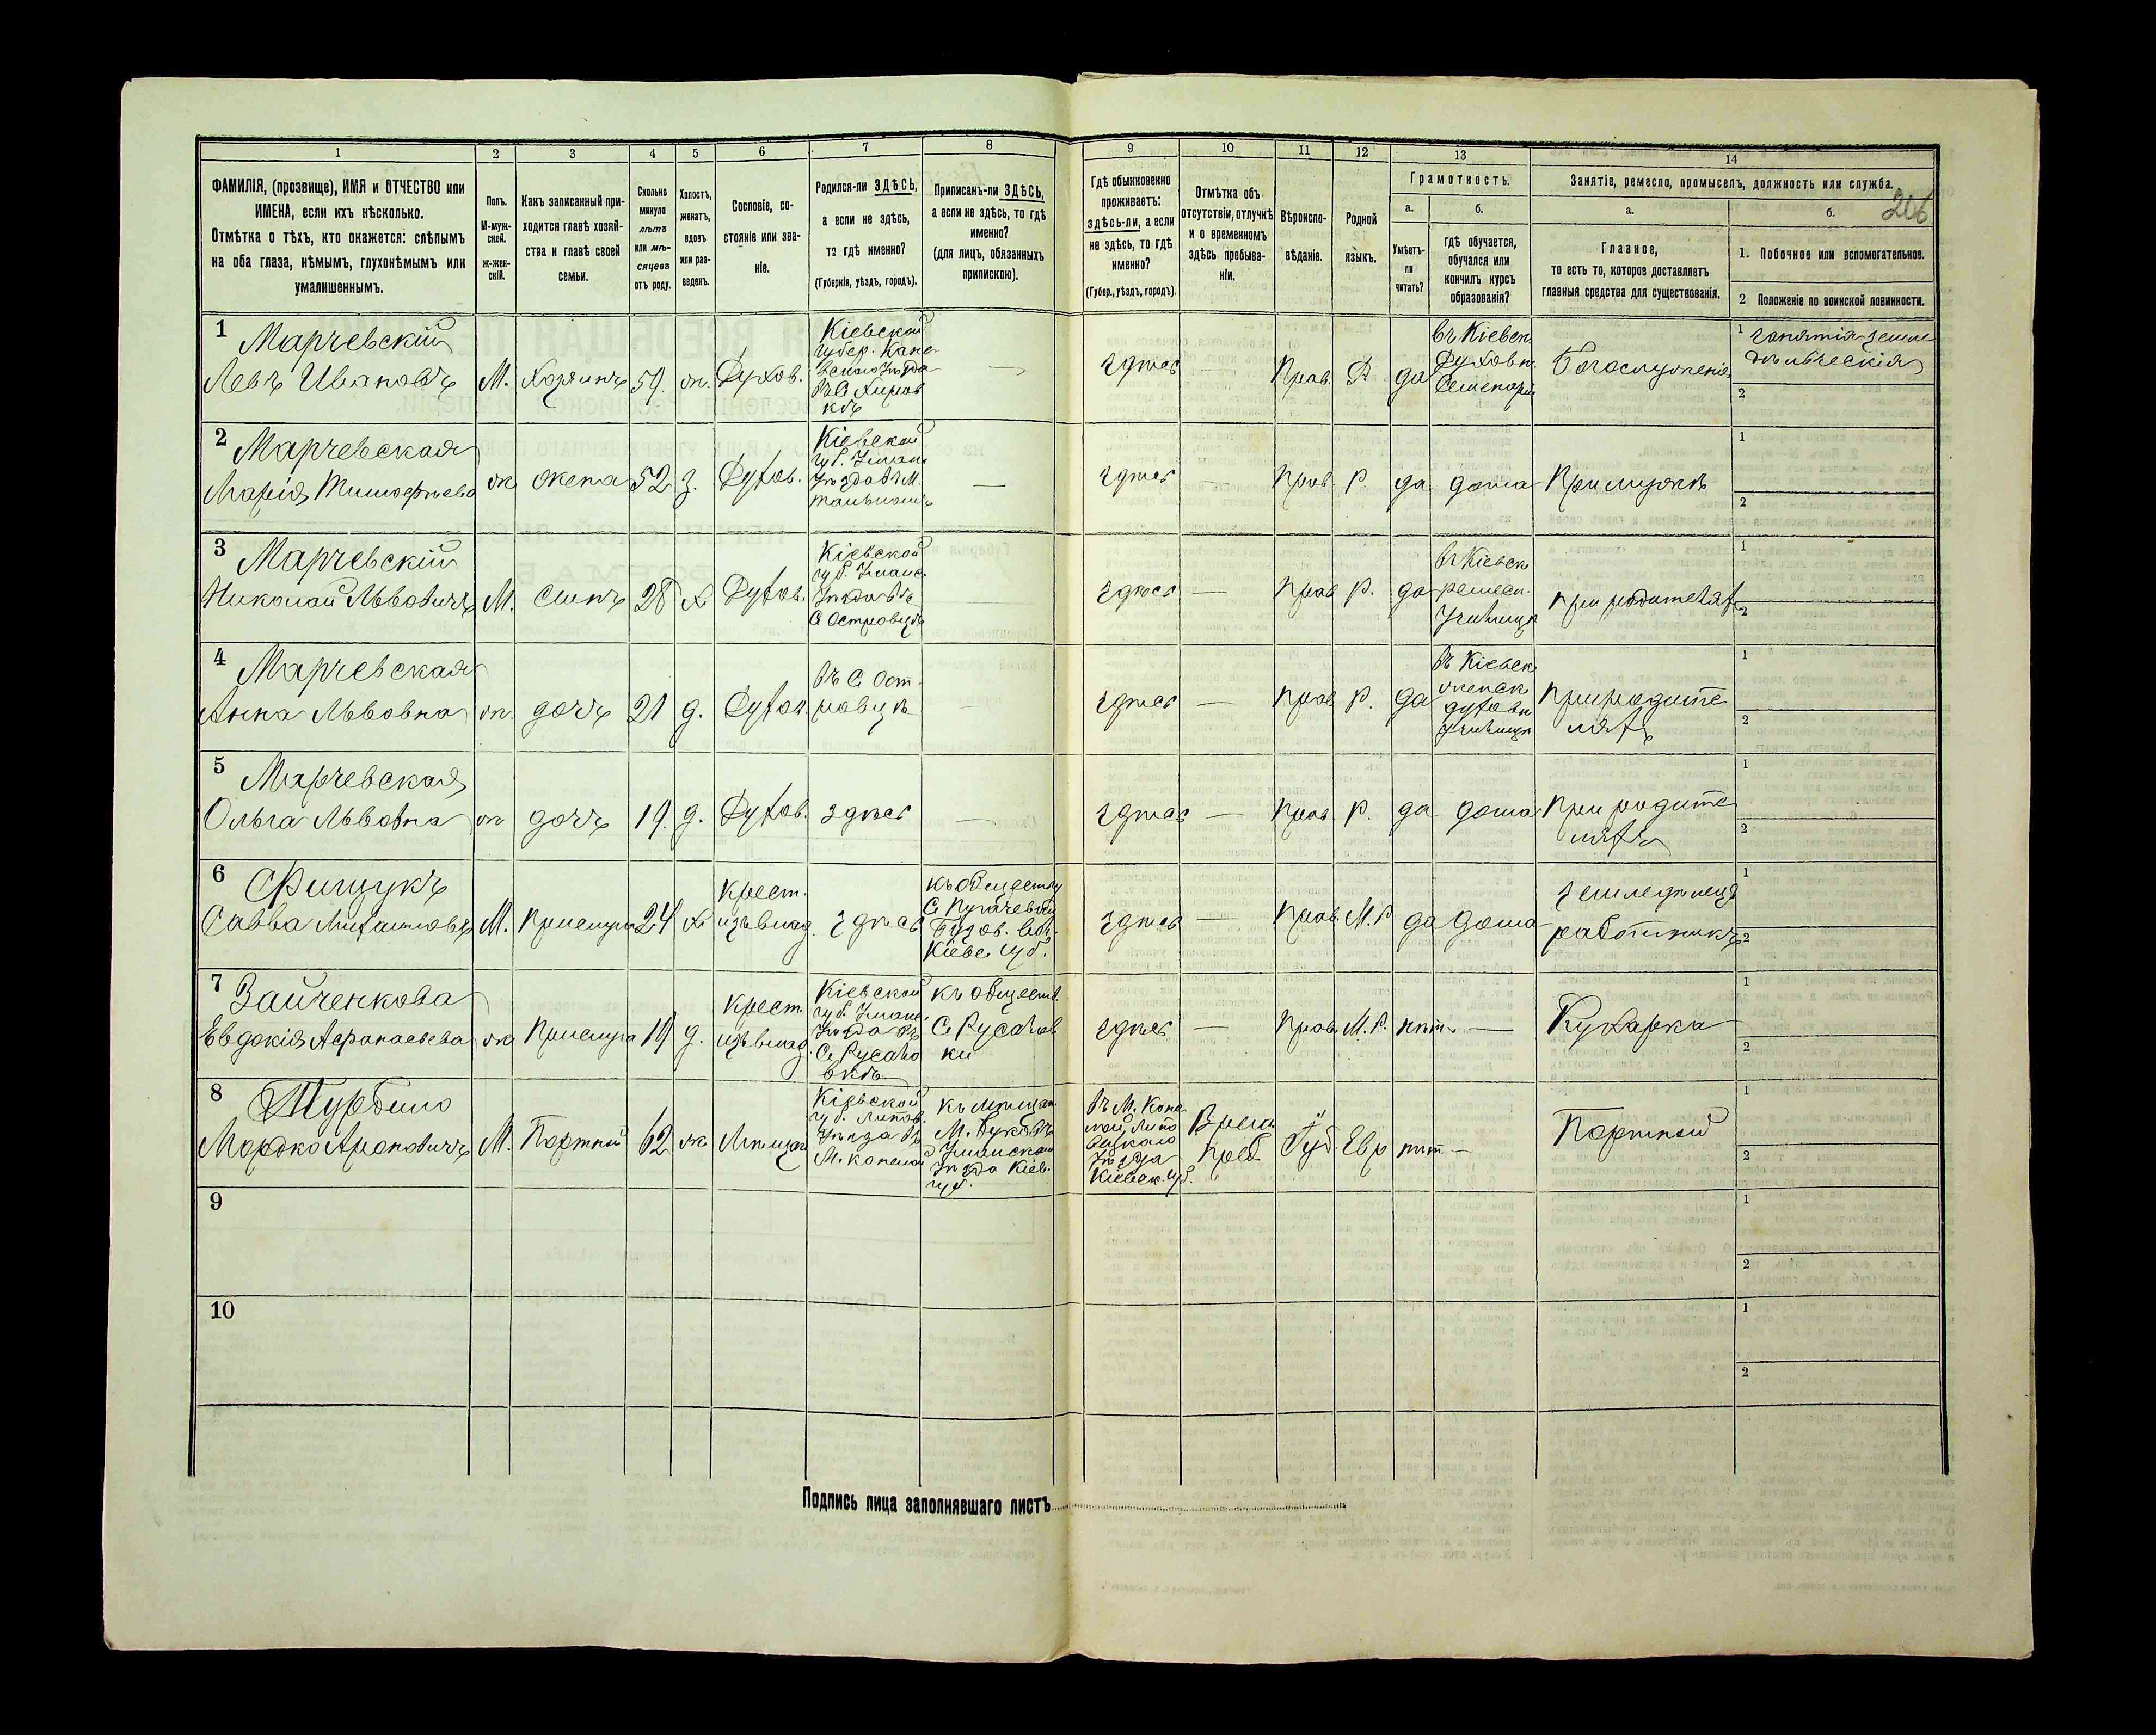 1 2 3 4 5 6 7 8 9 10 11 12 13 14
206
ФАМИЛІЯ, (прозвище), ИМЯ и ОТЧЕСТВО или
ИМЕНА, если ихъ нѣсколько.
Отмѣтка о тѣхъ, кто окажется: слѣпымъ
на оба глаза, нѣмымъ, глухонѣмымъ или
умалишеннымъ.
Полъ.
М-муж-
ской.
ж-жен-
скій.
Какъ записанный при-
ходится главѣ хозяй-
ства и главѣ своей
семьи.
Сколько
минуло
лѣтъ
или мѣ-
сяцевъ
отъ роду.
Холостъ,
женатъ,
вдовъ
или раз-
веденъ.
Сословіе, со-
стояніе или зва-
ніе.
Родился-ли ЗДѢСЬ,
а если не здѣсь,
то гдѣ именно?
(Губернія, уѣздъ, городъ).
Приписанъ-ли ЗДѢСЬ,
а если не здѣсь, то гдѣ
именно?
(для лицъ, обязанныхъ
припискою).
Гдѣ обыкновенно
проживаетъ:
здѣсь-ли, а если
не здѣсь, то гдѣ
именно?
(Губер., уѣздъ, городъ).
Отмѣтка объ
отсутствіи, отлучкѣ
и о временномъ
здѣсь пребыва-
ніи.
Вѣроиспо-
вѣданіе.
Родной
языкъ.
Грамотность.
а.
Умѣетъ-
ли
читать?
б.
гдѣ обучается,
обучался или
кончилъ курсъ
образованія?
Занятіе, ремесло, промыселъ, должность или служба.
а.
Главное,
то есть то, которое доставляетъ
главныя средства для существованія.
б.
1. Побочное или вспомогательное.
2 Положеніе по воинской повинности.
1 Марчевскій
Левъ Ивановъ
М.
Хозяинъ
59.
ж.
Духов.
Кіевской
губер. Кане-
вскаго Уѣзда
—
здѣсь
—
Прав.
Р
да
въ Кіевск.
Духовн.
Семенаріи
Богослуженіе
1 занятія земле
дѣльческія
2
2 Марчевская
Марія Тимофѣева
ж
жена
52
з.
Духов.
Кіевской
губ. Уман.
Уѣзда въ М.
—
здѣсь
—
Прав.
Р.
да
дома
При мужѣ
1
2
3 Марчевскій
Николай Львовичъ
М.
Сынъ
28
х
Духов.
Кіевской
губ. Уманс.
Уѣзда въ
С Островцѣ
здѣсь
—
Прав
Р.
да
въ Кіевск
ремесл.
Училищѣ
При родителяхъ
1
2
4 Марчевская
Анна Львовна
ж.
дочь
21
д.
Духов.
въ С. Ост-
ровцѣ
здѣсь
—
Прав
Р.
да
въ Кіевск
женск
духовн
Училищѣ
При родите
ляхъ
1
2
5 Марчевская
Ольга Львовна
ж
дочь
19.
д.
Духов.
здѣсь
—
здѣсь
—
Прав.
Р.
да
дома
При родите
ляхъ
1
2
6 Фищукъ
Савва Михаиловъ
М.
Прислуга
24
х
Крест.
изъ влад.
здѣсь
къ обществу
С Пугачевки
Кіевс. губ.
здѣсь
—
Прав.
М.Р
да
дома
земледѣлецъ
работникъ
1
2
7 Зайченкова
Евдокія Афонасьева
ж
Прислуга
19
д.
Крест.
изъ влад.
Кіевской
губ. Уманс.
Уѣзда въ
С. Русало
вкѣ
къ обществ.
С. Русалов
ки
здѣсь
—
Прав.
М.Р.
нѣт.
—
Кухарка
1
2
8
Мордко Ароновичъ
М.
Портной
62
ж
Мѣщан
Кіевской
губ. Липов.
Уѣзда въ
къ мѣщан.
М. Буковъ
Уманскаго
Уѣзда Кіев.
губ.
Уѣзда
Кіевск. губ.
Врем.
преб
Іуд.
Евр
нѣт
—
Портной
1
2
9
1
2
10
1
2
Подпись лица заполнявшаго листъ